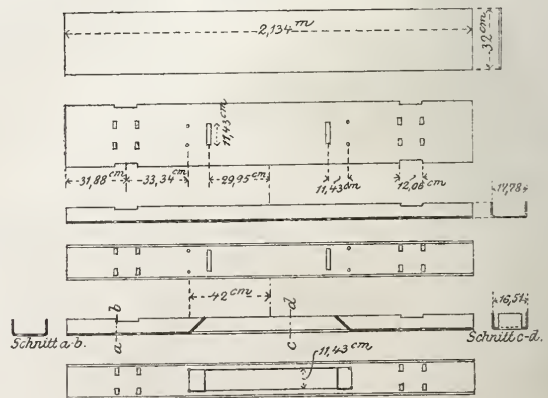 2,134 m
32 cm
11,43 cm
31,88 cm
33,34 cm
29,95 cm
11,43 cm
12,06 cm
17,78
42 cm
b
d
16,51
a
c
Schnitt a-b.
Schnitt c-d.
11,43 cm